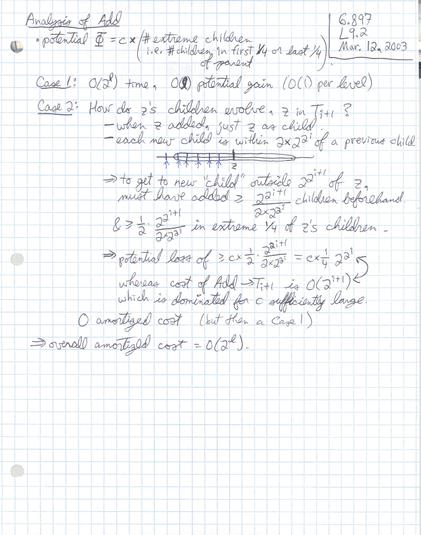 Analysis of Add
6.897
L9.2
Mar. 12, 2003
• potential Φ = c × (# extreme children
i.e. # children in first 1/4 or last 1/4
of parent)
Case 1: O(2^l) time, O(1) potential gain (O(1) per level)
Case 2: How do z's children evolve, z in T_{i+1}?
– when z added, just z as child
– each new child is within 2×2^{2^i} of a previous child
z
⇒ to get to new "child" outside 2^{2^{i+1}} of z,
must have added ≥ 2^{2^{i+1}} / 2×2^{2^i} children beforehand
& ≥ 1/2 · 2^{2^{i+1}} / 2×2^{2^i} in extreme 1/4 of z's children.
⇒ potential loss of ≥ c × 1/2 · 2^{2^{i+1}} / 2×2^{2^i} = c × 1/4 2^{2^i}
whereas cost of Add → T_{i+1} is O(2^{i+1})
which is dominated for c sufficiently large.
O amortized cost (but then a Case 1)
⇒ overall amortized cost = O(2^l).